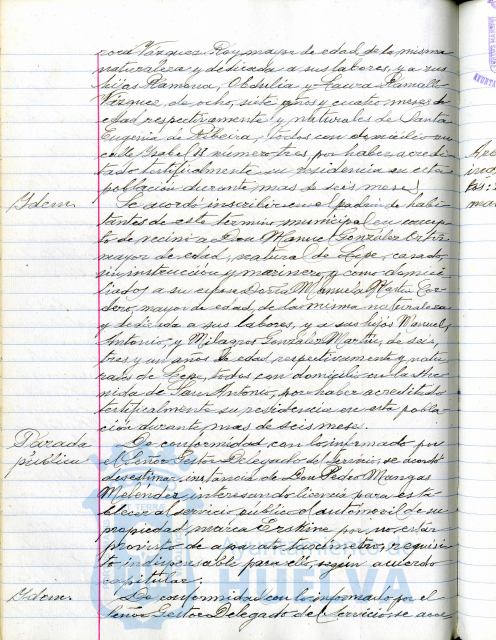 Vázquez Rey mayor de edad, de la misma
naturaleza y dedicada a sus labores, y a sus
hijos Ramona, Obdulia y Laura Ramallo
Vázquez, de ocho, siete años y cuatro meses de
edad respectivamente y naturales de Santa
Eugenia de Ribeira, todos con domicilio en
calle Isabel II número tres, por haber acredi-
tado testifical su residencia en esta
población durante mas de seis meses.
Idem.
Se acordó inscribir en el padrón de habi-
tantes de este término municipal en concep-
to de vecino a Don Manuel González Ortiz
mayor de edad, natural de Lepe, casado,
sin instrucción y marinero, y como domici-
liados a su esposa Doña Manuela Martín Cor-
dero, mayor de edad, de la misma naturaleza
y dedicada a sus labores, y a sus hijos Manuel,
Antonio, y Milagros González Martín, de seis,
tres y un años de edad, respectivamente y natu-
rales de Lepe, todos con domicilio en la Ave-
nida de San Antonio, por haber acreditado
testificalmente su residencia en esta pobla-
ción durante mas de seis meses.
Parada
pública
De conformidad con lo informado por
el Señor Gestor Delegado de Servicio, se acordó
desestimar instancia de Don Pedro Mangas
Meléndez interesando licencia para esta-
blecer al servicio público el automóvil de su
propiedad, marca Erskine por no estar
provisto de aparato taxímetro, requisi-
to indispensable para ello, según acuerdo
capitular.
Idem.
De conformidad con lo informado por el
Señor Gestor Delegado de Servicios, se acor
Ayuntamiento de
HUELVA